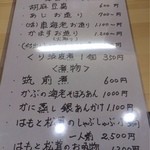 胡麻豆腐 600円
あじお造り
かますお造り
くり渋皮煮 1個 350円
〈煮物〉
筑前煮 600円
かぶの海老そぼろあん 1000円
かに蒸し 銀あんかけ 1100円
はもと松茸のしゃぶしゃぶ
一人前 2500円
はもと松茸のお吸物 1200円